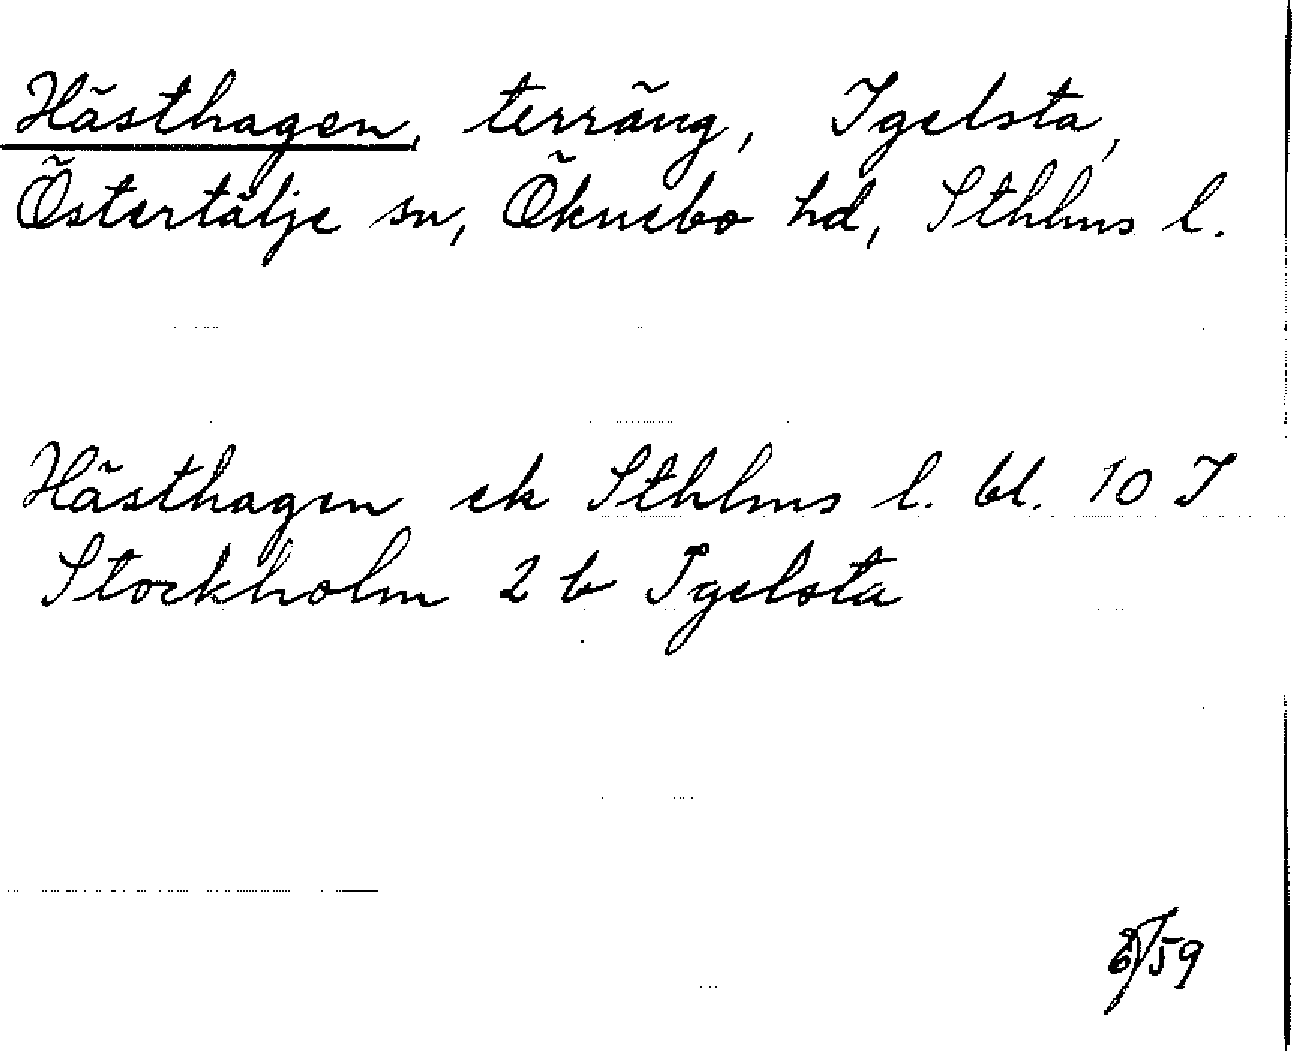 Hästhagen, terräng, Igelsta,
Östertälje sn, Öknebo hd, Sthlms l.
Hästhagen ek Sthlms l. bl. 10 I
Stockholm 2 b Igelsta
/59